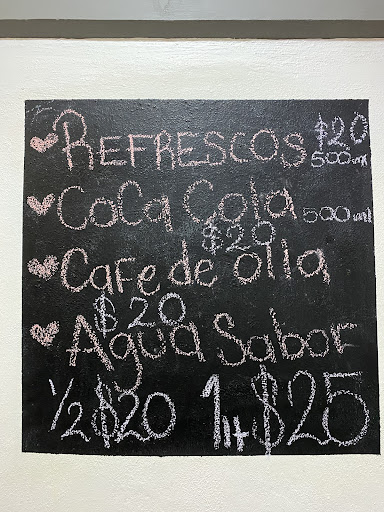 REFRESCOS $20
500 ml
CoCa Cola 500 ml
$20
Cafe de olla
$20
Agua Sabor
1/2 $20 1Lt $25